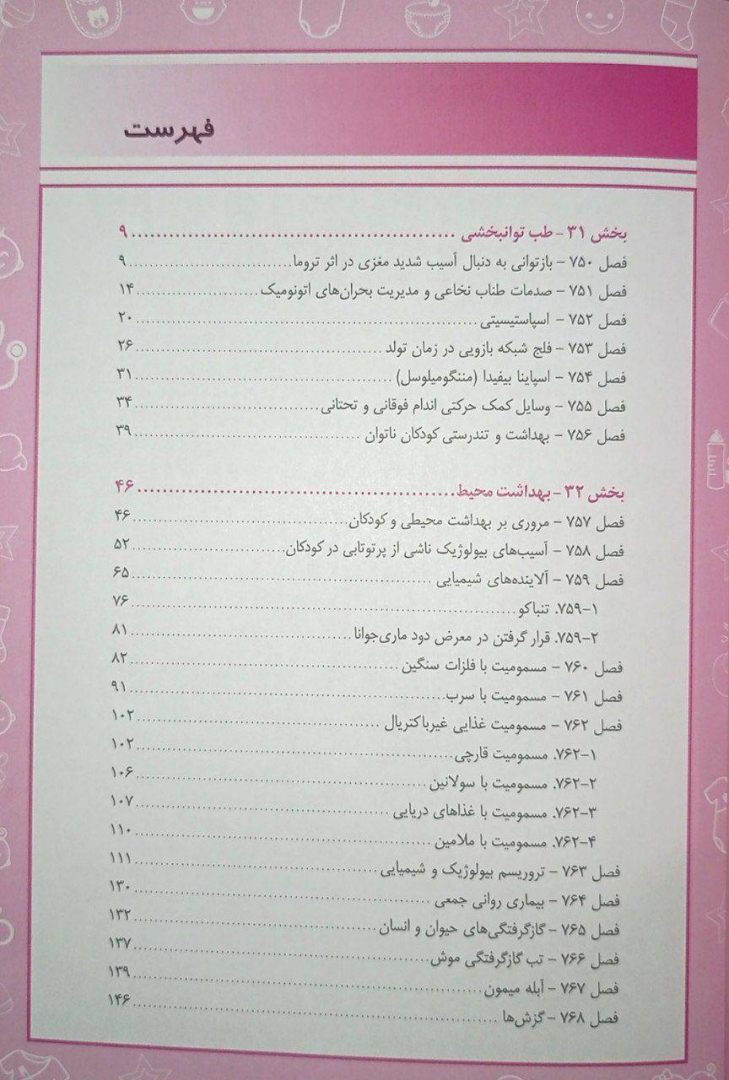 فهرست
بخش ۳۱ - طب توانبخشی ................................................ ۹
فصل ۷۵۰ - بازتوانی به دنبال آسیب شدید مغزی در اثر تروما ................................ ۹
فصل ۷۵۱ - صدمات طناب نخاعی و مدیریت بحران‌های اتونومیک ........................ ۱۴
فصل ۷۵۲ - اسپاستیسیتی ................................................ ۲۰
فصل ۷۵۳ - فلج شبکه بازویی در زمان تولد ................................ ۲۶
فصل ۷۵۴ - اسپاینا بیفیدا (مننگومیلوسل) ................................ ۳۱
فصل ۷۵۵ - وسایل کمک حرکتی اندام فوقانی و تحتانی ........................ ۳۴
فصل ۷۵۶ - بهداشت و تندرستی کودکان ناتوان ................................ ۳۹
بخش ۳۲ - بهداشت محیط ................................................ ۴۶
فصل ۷۵۷ - مروری بر بهداشت محیطی و کودکان ................................ ۴۶
فصل ۷۵۸ - آسیب‌های بیولوژیک ناشی از پرتوتابی در کودکان ........................ ۵۲
فصل ۷۵۹ - آلاینده‌های شیمیایی ................................ ۶۵
۷۵۹-۱. تنباکو ................................................ ۷۶
۷۵۹-۲. قرار گرفتن در معرض دود ماری‌جوانا ................................ ۸۱
فصل ۷۶۰ - مسمومیت با فلزات سنگین ................................ ۸۲
فصل ۷۶۱ - مسمومیت با سرب ................................ ۹۱
فصل ۷۶۲ - مسمومیت غذایی غیرباکتریال ................................ ۱۰۲
۷۶۲-۱. مسمومیت قارچی ................................ ۱۰۲
۷۶۲-۲. مسمومیت با سولانین ................................ ۱۰۶
۷۶۲-۳. مسمومیت با غذاهای دریایی ................................ ۱۰۷
۷۶۲-۴. مسمومیت با ملامین ................................ ۱۱۰
فصل ۷۶۳ - تروریسم بیولوژیک و شیمیایی ................................ ۱۱۱
فصل ۷۶۴ - بیماری روانی جمعی ................................ ۱۳۰
فصل ۷۶۵ - گازگرفتگی‌های حیوان و انسان ................................ ۱۳۲
فصل ۷۶۶ - تب گازگرفتگی موش ................................ ۱۳۷
فصل ۷۶۷ - آبله میمون ................................ ۱۳۹
فصل ۷۶۸ - گزش‌ها ................................ ۱۴۶